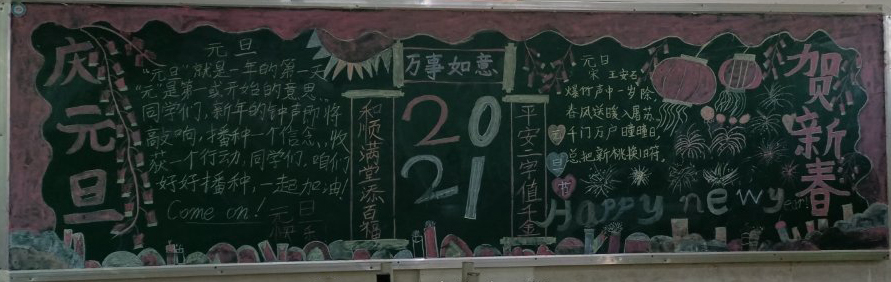 庆元旦
元旦
"元旦"就是一年的第一天
"元"是第一或开始的意思
同学们,新年的钟声即将
敲响,播种一个信念,收
获一个行动,同学们,咱们
好好播种,一起加油!
Come on! 元旦
和顺满堂添百福
万事如意
20
21
平安二字值千金
元旦
宋 王安石
爆竹声中一岁除,
春风送暖入屠苏,
千门万户曈曈日,
总把新桃换旧符。
Happy new year!
贺新春